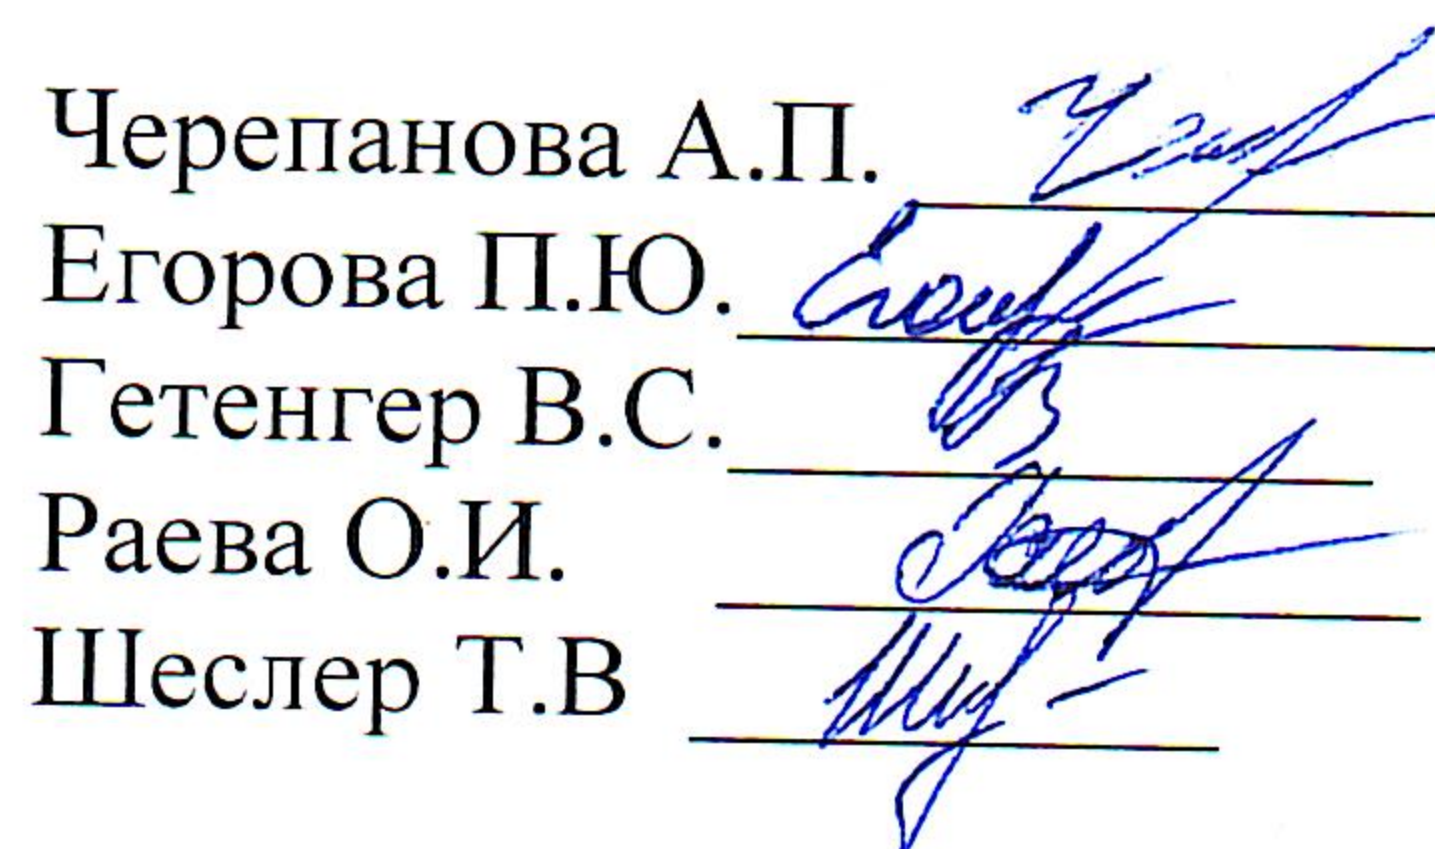 Черепанова А.П.
Егорова П.Ю.
Гетенгер В.С.
Раева О.И.
Шеслер Т.В